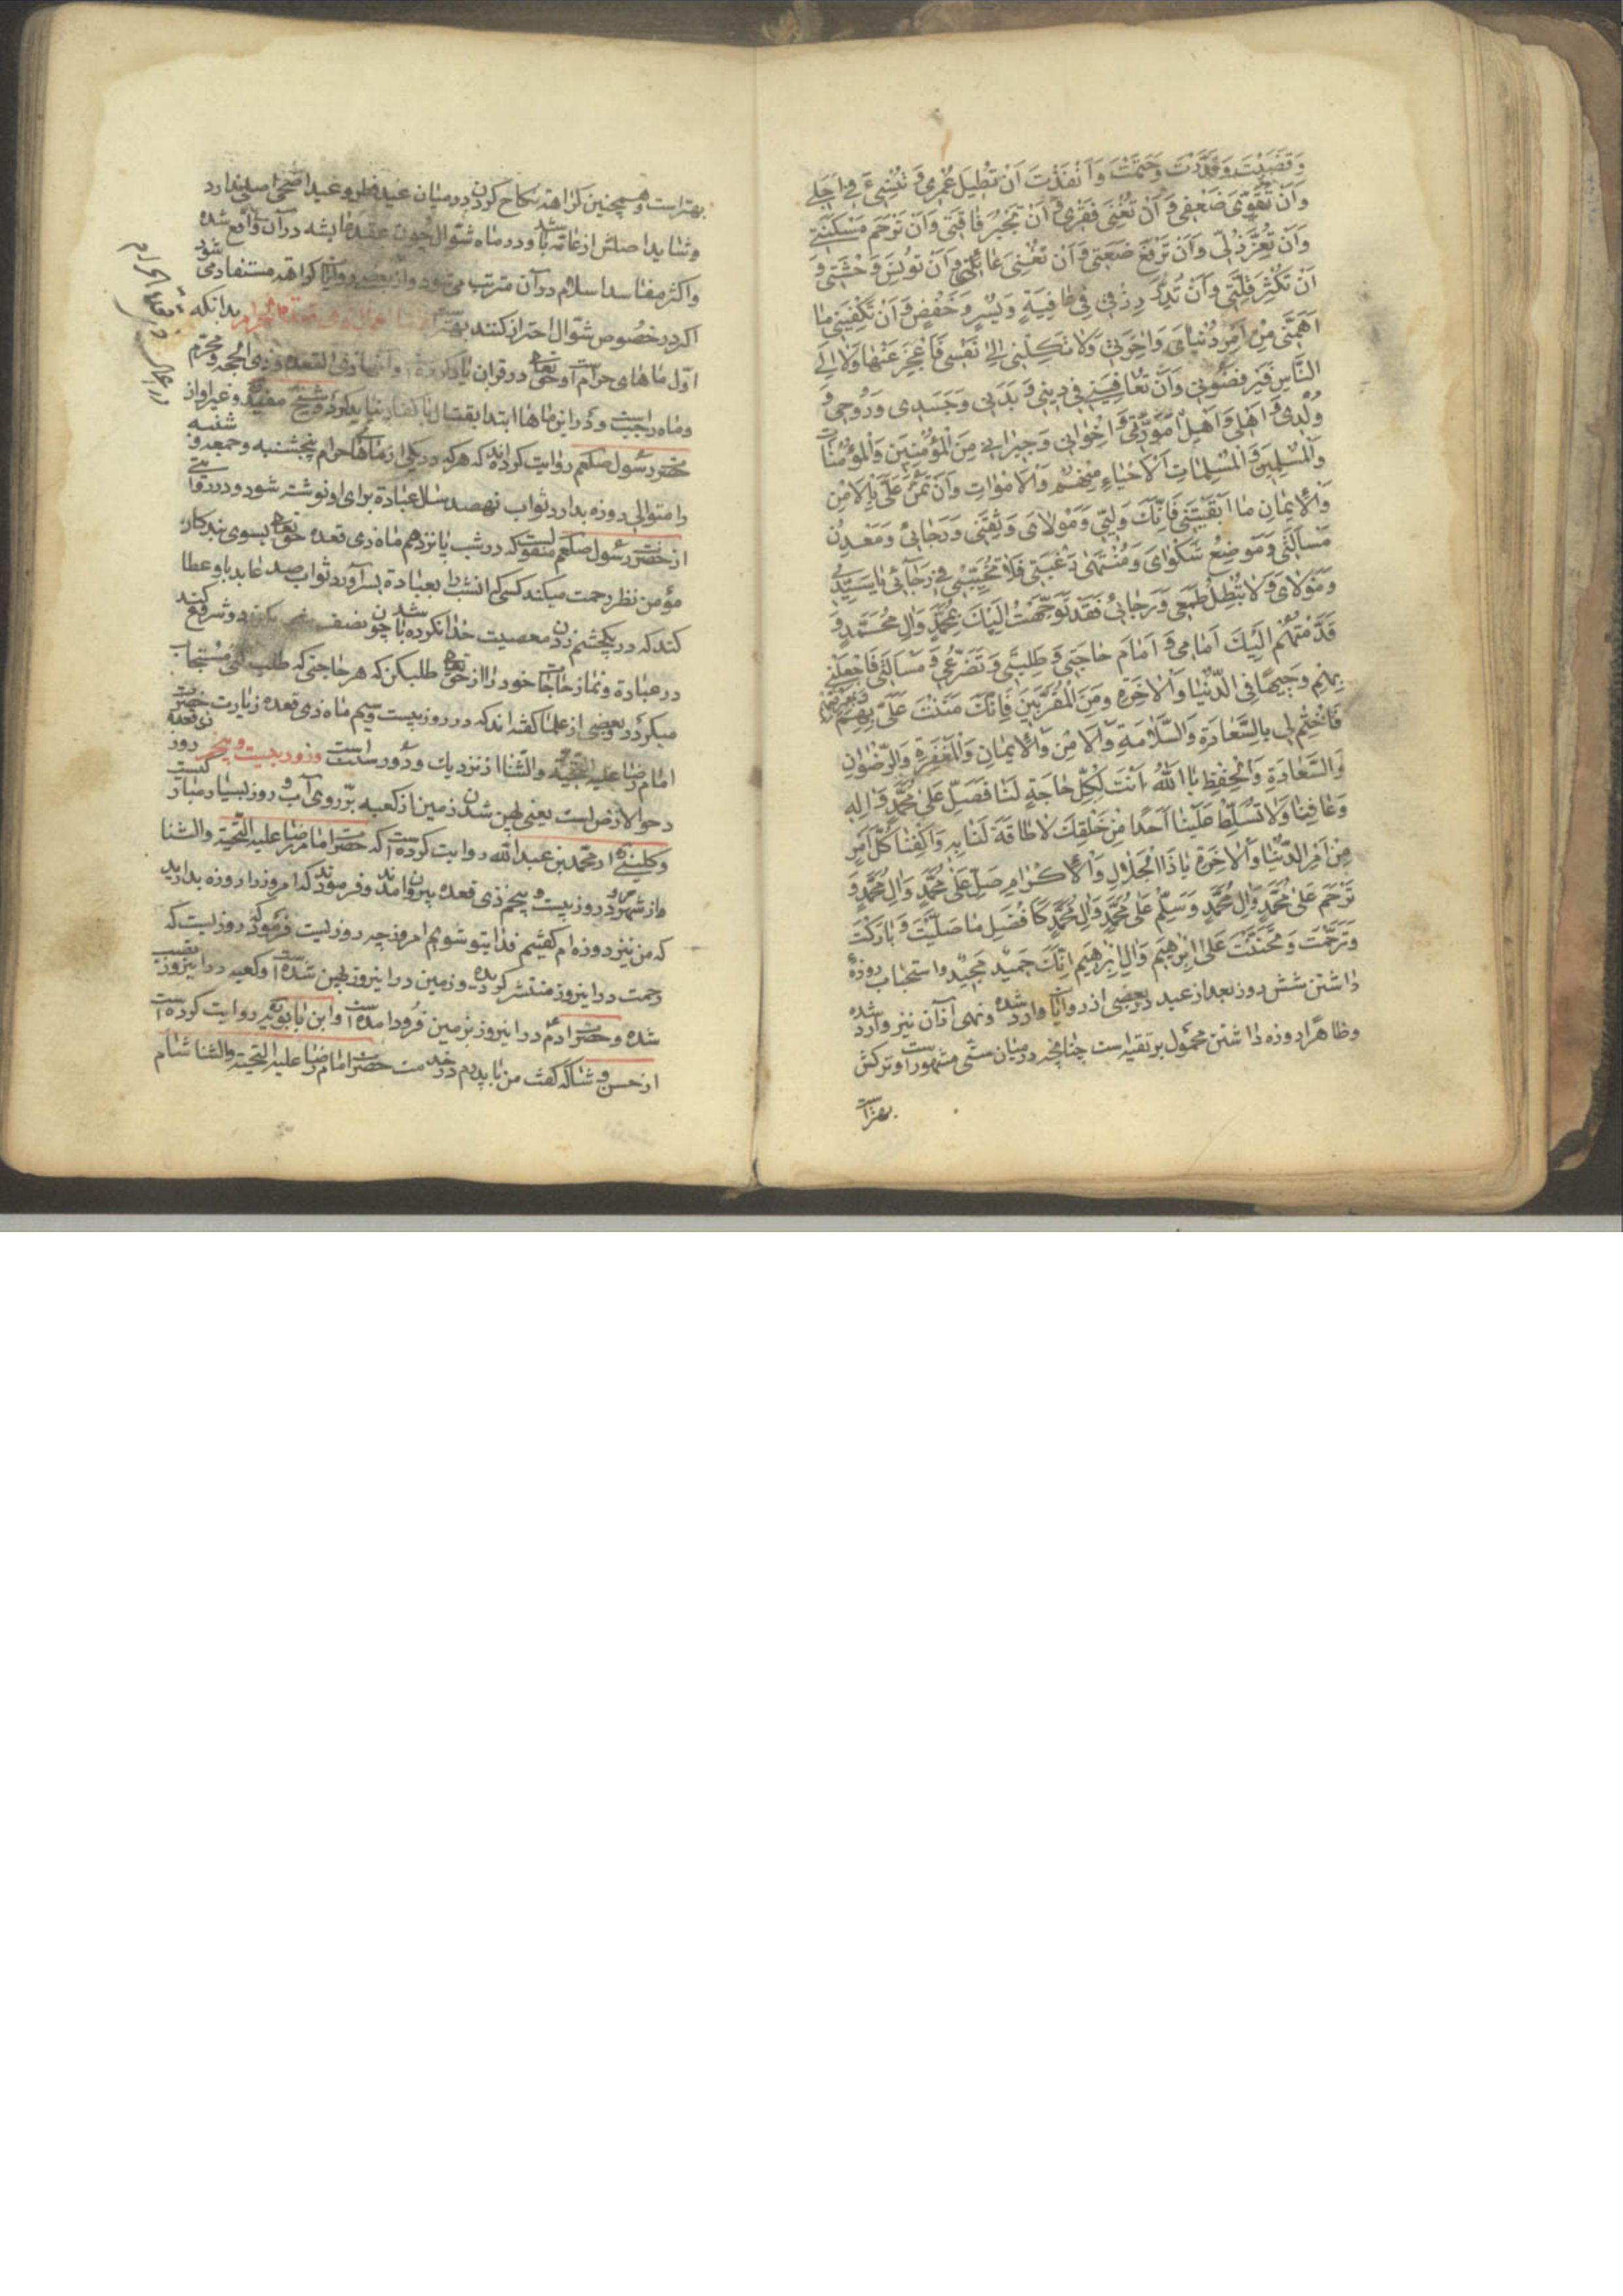 وَقَضَيْتَ وَقَدَّرْتَ وَحَتَمْتَ وَاَنْفَذْتَ اَنْ تُطيلَ عُمْرى وَ تُنْسِئَ فى اَجَلى
وَاَنْ تُقَوِّىَ ضَعْفى وَ اَنْ تُغْنِىَ فَقْرى وَ اَنْ تَجْبُرَ فاقَتى وَاَنْ تَرْحَمَ مَسْكَنَتى
وَاَنْ تُعِزَّ ذُلّى وَاَنْ تَرْفَعَ ضَعَتى وَاَنْ تُغْنِىَ عائِلَتى وَاَنْ تُونِسَ وَحْشَتى وَ
اَنْ تُكْثِرَ قِلَّتى وَاَنْ تُدِرَّ رِزْقى فى عافِيَةٍ وَيُسْرٍ وَخَفْضٍ وَ اَنْ تَكْفِيَنى ما
اَهَمَّنى مِنْ اَمْرِ دُنْياىَ وَاخِرَتى وَلا تَكِلْنى اِلى نَفْسى فَاَعْجِزَ عَنْها وَلا اِلَى
النّاسِ فَيَرْفُضُونى وَاَنْ تُعافِيَنى فى دينى وَ بَدَنى وَجَسَدى وَرُوحى وَ
وُلْدى وَ اَهْلى وَاَهْلِ مَوَدَّتى وَ اِخْوانى وَجيرانى مِنَ الْمُؤْمِنينَ وَالْمُؤْمِناتِ
وَالْمُسْلِمينَ وَالْمُسْلِماتِ اَلْاَحْياءِ مِنْهُمْ وَالْاَمْواتِ وَاَنْ تَمُنَّ عَلَىَّ بِالْاَمْنِ
وَالْايمانِ ما اَبْقَيْتَنى فَاِنَّكَ وَلِيّى وَمَوْلاىَ وَثِقَتى وَرَجائى وَمَعْدِنُ
مَسْاَلَتى وَمَوْضِعُ شَكْواىَ وَمُنْتَهى رَغْبَتى فَلا تُخَيِّبْنى فى رَجائى يا سَيِّدى
وَمَوْلاىَ وَلا تُبْطِلْ طَمَعى وَرَجائى فَقَدْ تَوَجَّهْتُ اِلَيْكَ بِمُحَمَّدٍ وَالِ مُحَمَّدٍ وَ
قَدَّمْتُهُمْ اِلَيْكَ اَمامى وَ اَمامَ حاجَتى وَ طَلِبَتى وَتَضَرُّعى وَ مَسْاَلَتى فَاجْعَلْنى
بِهِمْ وَجيهًا فِى الدُّنْيا وَالْاخِرَةِ وَمِنَ الْمُقَرَّبينَ فَاِنَّكَ مَنَنْتَ عَلَىَّ بِمَعْرِفَتِهِمْ
فَاخْتِمْ لى بِالسَّعادَةِ وَالسَّلامَةِ وَالْاَمْنِ وَالْايمانِ وَالْمَغْفِرَةِ وَالرِّضْوانِ
وَالسَّعادَةِ وَالْحِفْظِ يا اَللّٰهُ اَنْتَ لِكُلِّ حاجَةٍ لَنا فَصَلِّ عَلى مُحَمَّدٍ وَ الِهِ
وَعافِنا وَلا تُسَلِّطْ عَلَيْنا اَحَدًا مِنْ خَلْقِكَ لا طاقَةَ لَنا بِهِ وَاكْفِنا كُلَّ اَمْرٍ
مِنْ اَمْرِ الدُّنْيا وَالْاخِرَةِ يا ذَا الْجَلالِ وَالْاِكْرامِ صَلِّ عَلى مُحَمَّدٍ وَالِ مُحَمَّدٍ وَ
تَرَحَّمْ عَلى مُحَمَّدٍ وَالِ مُحَمَّدٍ وَسَلِّمْ عَلى مُحَمَّدٍ وَالِ مُحَمَّدٍ كَاَفْضَلِ ما صَلَّيْتَ وَ بارَكْتَ
وَتَرَحَّمْتَ وَتَحَنَّنْتَ عَلى اِبْرهيمَ وَالِ اِبْرهيمَ اِنَّكَ حَميدٌ مَجيدٌ و استحباب روزهٔ
داشتن شش روز بعد از عید در بعضی از روایات وارد شده و نهی از آن نیز وارد شده
و ظاهرا روزه داشتن محمول بر تقیه است چنانچه در میان سنی مشهور است و ترکش
بهتر است
بهتر است و همچنین کراهة نکاح کردن در میان عید فطر و عید اضحی اصلی ندارد
و شاید اصلش از عامّه باشد و در ماه شوال چون عقد عایشه در آن واقع شده
و اکثر مفاسد اسلام در آن مترتب می شود و از بعضی روایات کراهة مستفاد می شود
اکر در خصوص شوال احتراز کنند بهتر است اعمال ذی قعدة الحرام بدانکه
اول ماهای حرام است و حق تعالی در قران یاد کرده و انها ذی القعده و ذی الحجه و محرم
و ماه رجب است و در این ماها ابتدا بقتال با کفار نباید کرد و شیخ مفید و غیر او از
حضرت رسول صلعم روایت کرده اند که هر که در یکی از ماههای حرام پنجشنبه و جمعه و شنبه
را متوالی روزه بدارد ثواب نهصد سال عبادة برای او نوشته شود و در روایتی
از حضرت رسول صلعم منقولست که در شب پانزدهم ماه ذی قعده حق تعالی بسوی بندکان
مؤمن نظر رحمت میکند کسی که انشب را بعبادة بسر آورد ثواب صد عابد باو عطا
کند که در یکچشم زدن معصیت خدا نکرده باشد چون نصف شب شود شروع کند
در عبادة و نماز حاجات خود را از حق تعالی طلب کن که هر حاجتی که طلب کنی مستجاب
میکردد و بعضی از علما کفته اند که در روز بیست و سیم ماه ذی قعده زیارت حضرت
امام رضا علیه التحیة و الثنا از نزدیک و دور سنت است و روز بیست و پنجم ذی قعده روز
دحو الارض است یعنی پهن شدن زمین از کعبه بر روی آب و روز بسیار مبارکیست
و کلینی از محمد بن عبدالله روایت کرده است که حضرت امام رضا علیه التحیة و الثنا
در روز بیست و پنجم ذی قعده بیرون امدند و فرمودند که امروز را روزه بدارید
که من نیز روزه ام کفتیم فدای تو شویم امروز چه روزیست فرمود که روزیست که
رحمت در اینروز منتشر کردیده و زمین در اینروز پهن شده است و کعبه در اینروز نصب
شده و حضرت ادم در اینروز بزمین فرود امده است و ابن بابویه روایت کرده است
از حسن وشا که کفت من با پدرم در خدمت حضرت امام رضا علیه التحیة و الثنا شام